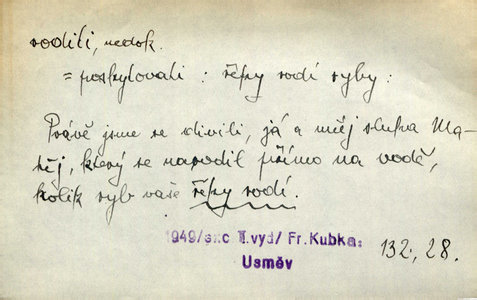 roditi, nedok.
= poskytovati : řeky rodí ryby :
Právě jsme se divili, já a můj sluha Ma-
těj, který se narodil přímo na vodě,
kolik ryb vaše řeky rodí.
1949/exc II.vyd/ Fr.Kubka: 132, 28.
Usměv